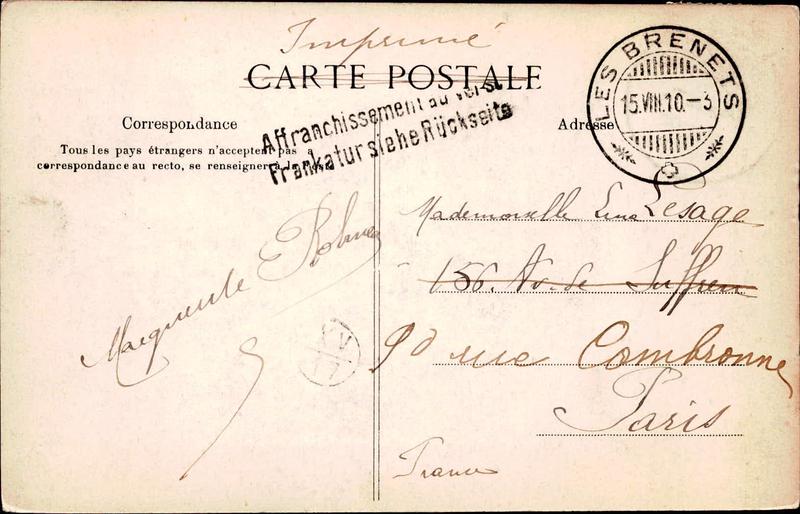 Imprimé
CARTE POSTALE
LES BRENETS
15.VIII.10.-3
Affranchissement au verso
Frankatur siehe Rückseite
Correspondance
Tous les pays étrangers n'acceptent pas a
correspondance au recto, se renseigner à la
Adresse
Mademoiselle Lesage
156. Av. de Suffren
rue Cambronne
Paris
France
Marguerite